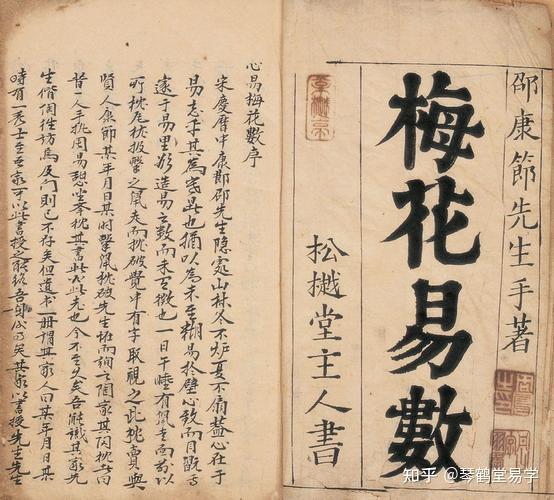 邵康節先生手著
梅花易數
松樾堂主人書
心易梅花數序
宋慶曆中康節邵先生隱處山林冬不炉夏不扇蓋心在于
易忘乎其為寒暑也猶以為未至糊易於壁心致而目翫焉
邃于易里欲造易之數而未有徵也一日午睡有鼠走而前以
所枕瓦枕投擊之鼠走而枕破覺中有字取視之此枕賣與
賢人康節某年月日某時擊鼠枕破先生怪而詢之陶家其陶枕者曰
昔一人手执周易憩坐举枕其書必此老也今不至久矣吾能識其家先
生偕陶往訪焉及門則已不存矣但遺书一册謂其家人曰某年月日某
時有一秀士至吾家可以此書授之能終吾身矣其家以書授先生先生
知乎 @琴鶴堂易学